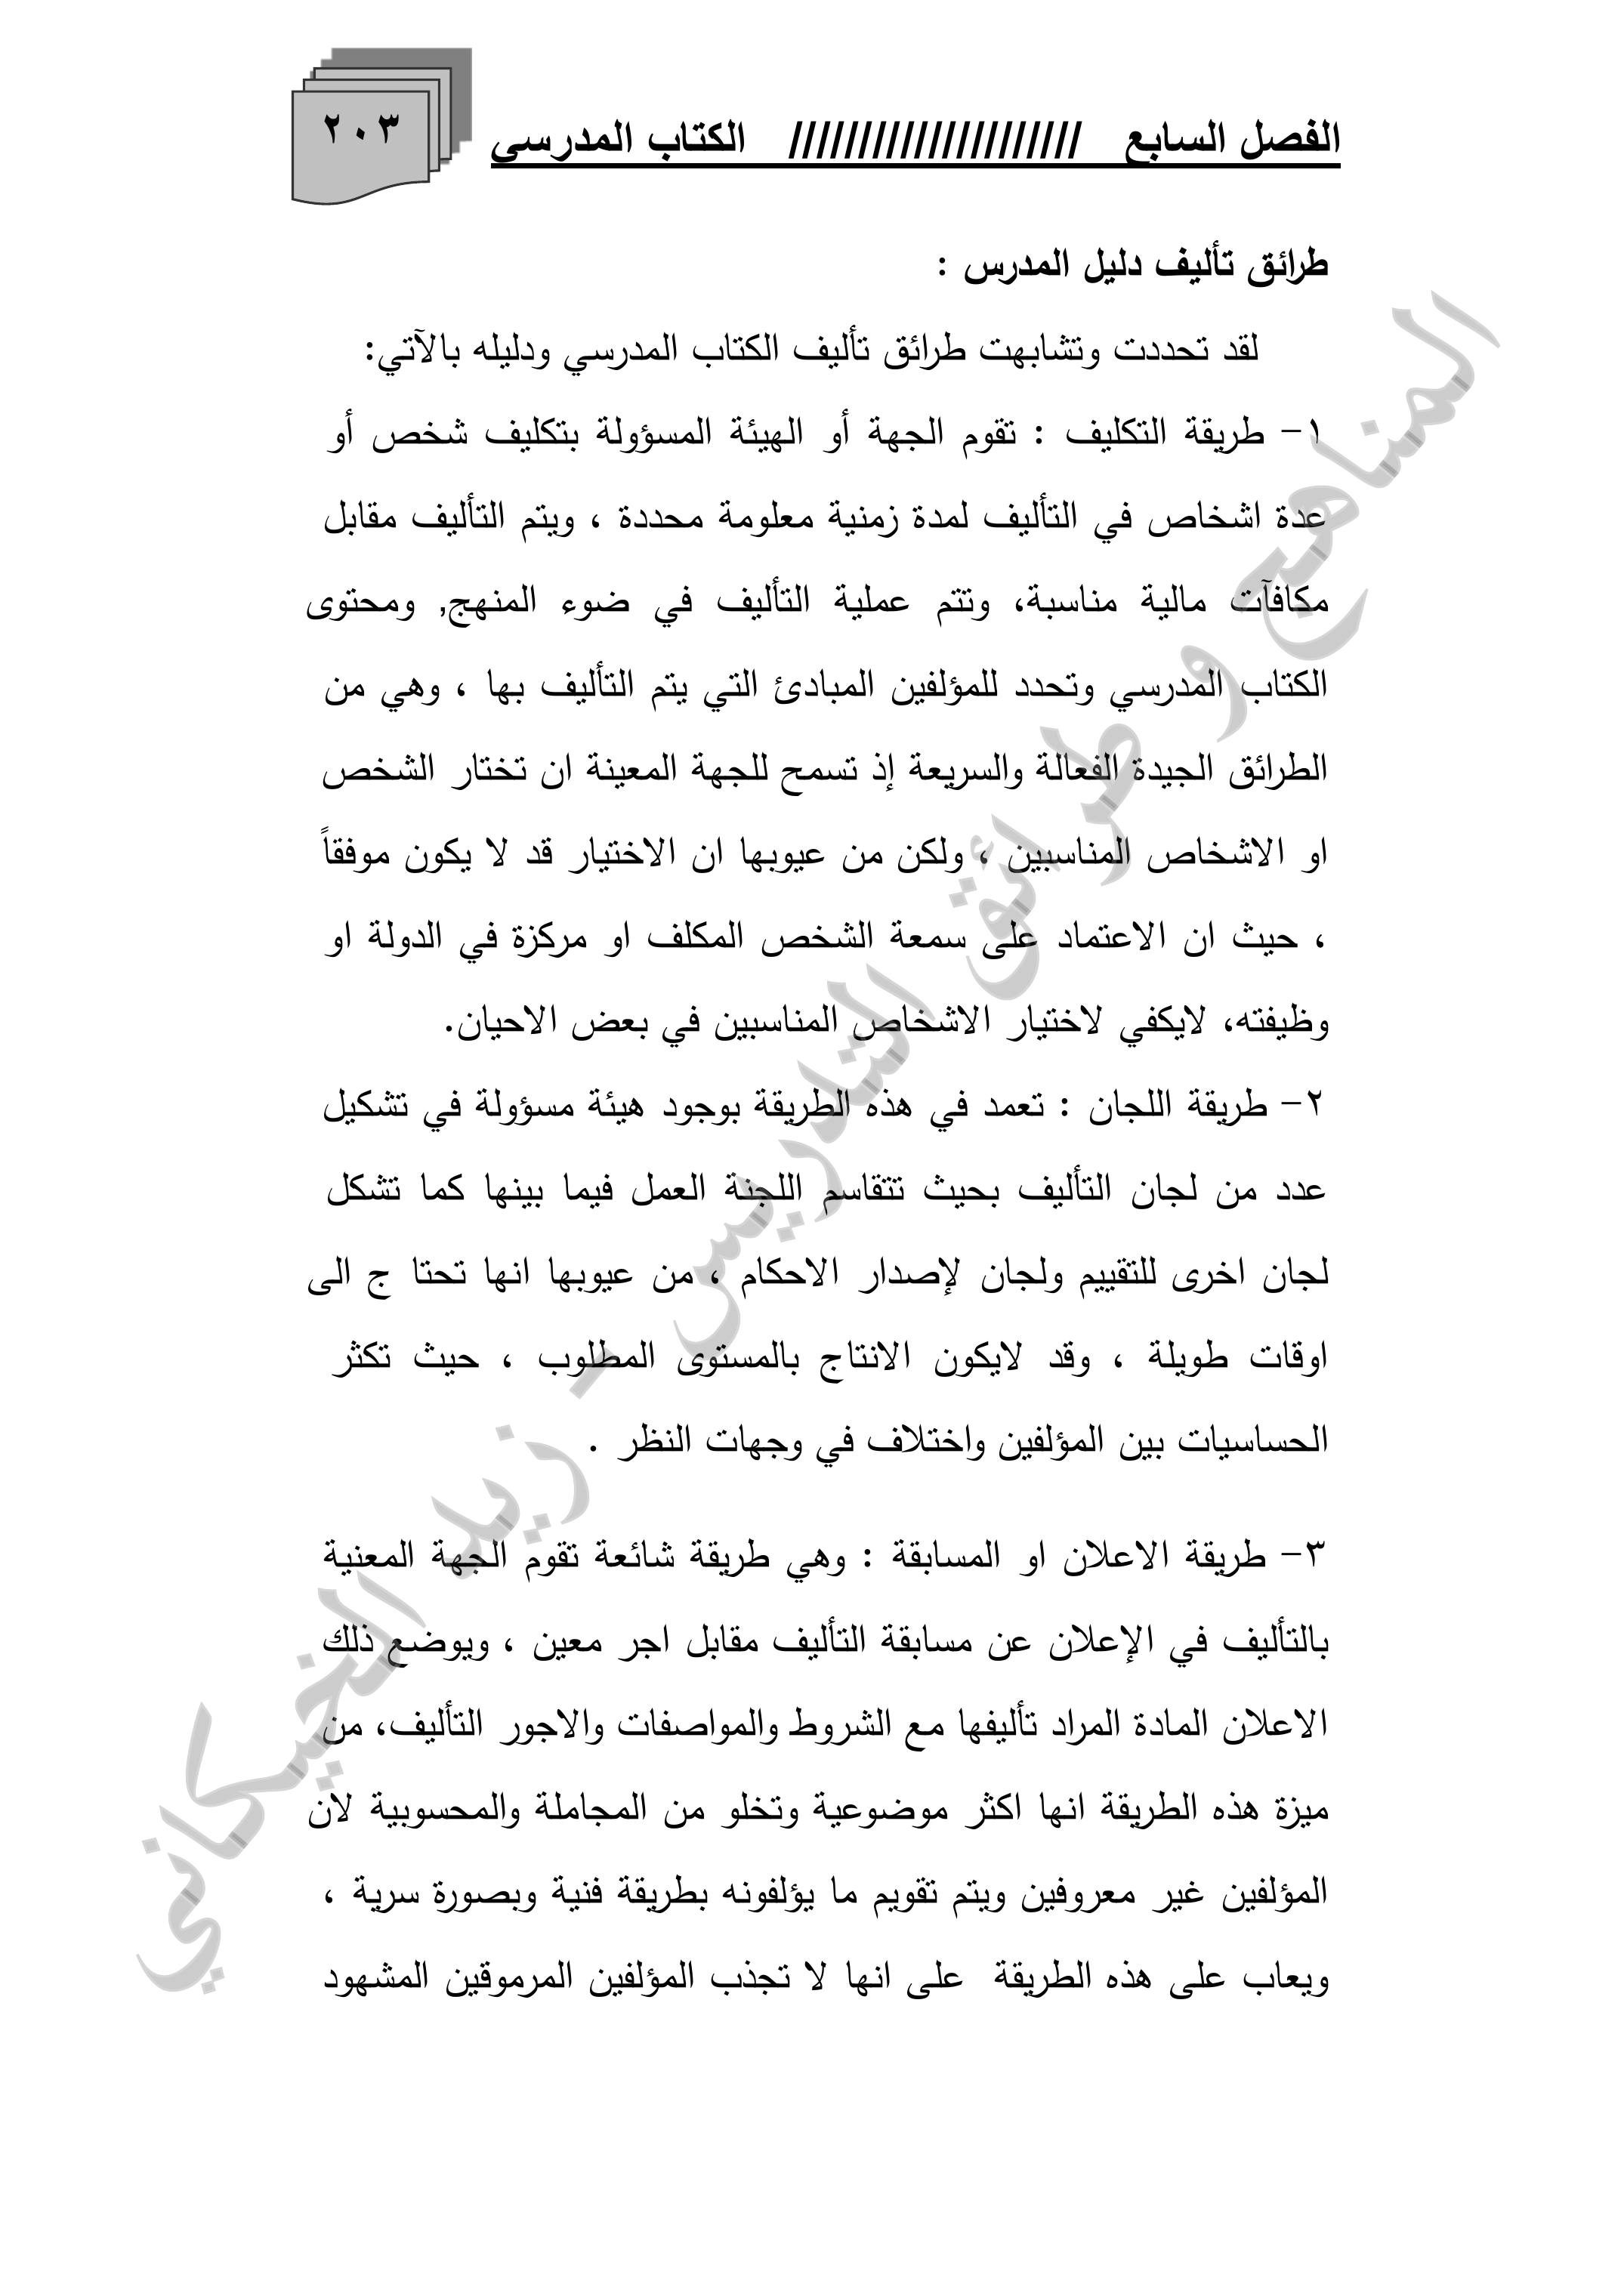 الفصل السابع ///////////////////// الكتاب المدرسي
٢٠٣
طرائق تأليف دليل المدرس :
لقد تحددت وتشابهت طرائق تأليف الكتاب المدرسي ودليله بالآتي:
١- طريقة التكليف : تقوم الجهة أو الهيئة المسؤولة بتكليف شخص أو
عدة اشخاص في التأليف لمدة زمنية معلومة محددة ، ويتم التأليف مقابل
مكافآت مالية مناسبة، وتتم عملية التأليف في ضوء المنهج, ومحتوى
الكتاب المدرسي وتحدد للمؤلفين المبادئ التي يتم التأليف بها ، وهي من
الطرائق الجيدة الفعالة والسريعة إذ تسمح للجهة المعينة ان تختار الشخص
او الاشخاص المناسبين ، ولكن من عيوبها ان الاختيار قد لا يكون موفقاً
، حيث ان الاعتماد على سمعة الشخص المكلف او مركزة في الدولة او
وظيفته، لايكفي لاختيار الاشخاص المناسبين في بعض الاحيان.
٢- طريقة اللجان : تعمد في هذه الطريقة بوجود هيئة مسؤولة في تشكيل
عدد من لجان التأليف بحيث تتقاسم اللجنة العمل فيما بينها كما تشكل
لجان اخرى للتقييم ولجان لإصدار الاحكام ، من عيوبها انها تحتا ج الى
اوقات طويلة ، وقد لايكون الانتاج بالمستوى المطلوب ، حيث تكثر
الحساسيات بين المؤلفين واختلاف في وجهات النظر .
٣- طريقة الاعلان او المسابقة : وهي طريقة شائعة تقوم الجهة المعنية
بالتأليف في الإعلان عن مسابقة التأليف مقابل اجر معين ، ويوضع ذلك
الاعلان المادة المراد تأليفها مع الشروط والمواصفات والاجور التأليف، من
ميزة هذه الطريقة انها اكثر موضوعية وتخلو من المجاملة والمحسوبية لان
المؤلفين غير معروفين ويتم تقويم ما يؤلفونه بطريقة فنية وبصورة سرية ،
ويعاب على هذه الطريقة على انها لا تجذب المؤلفين المرموقين المشهود
المناهج و طرائق التدريس - زيد الخيكاني